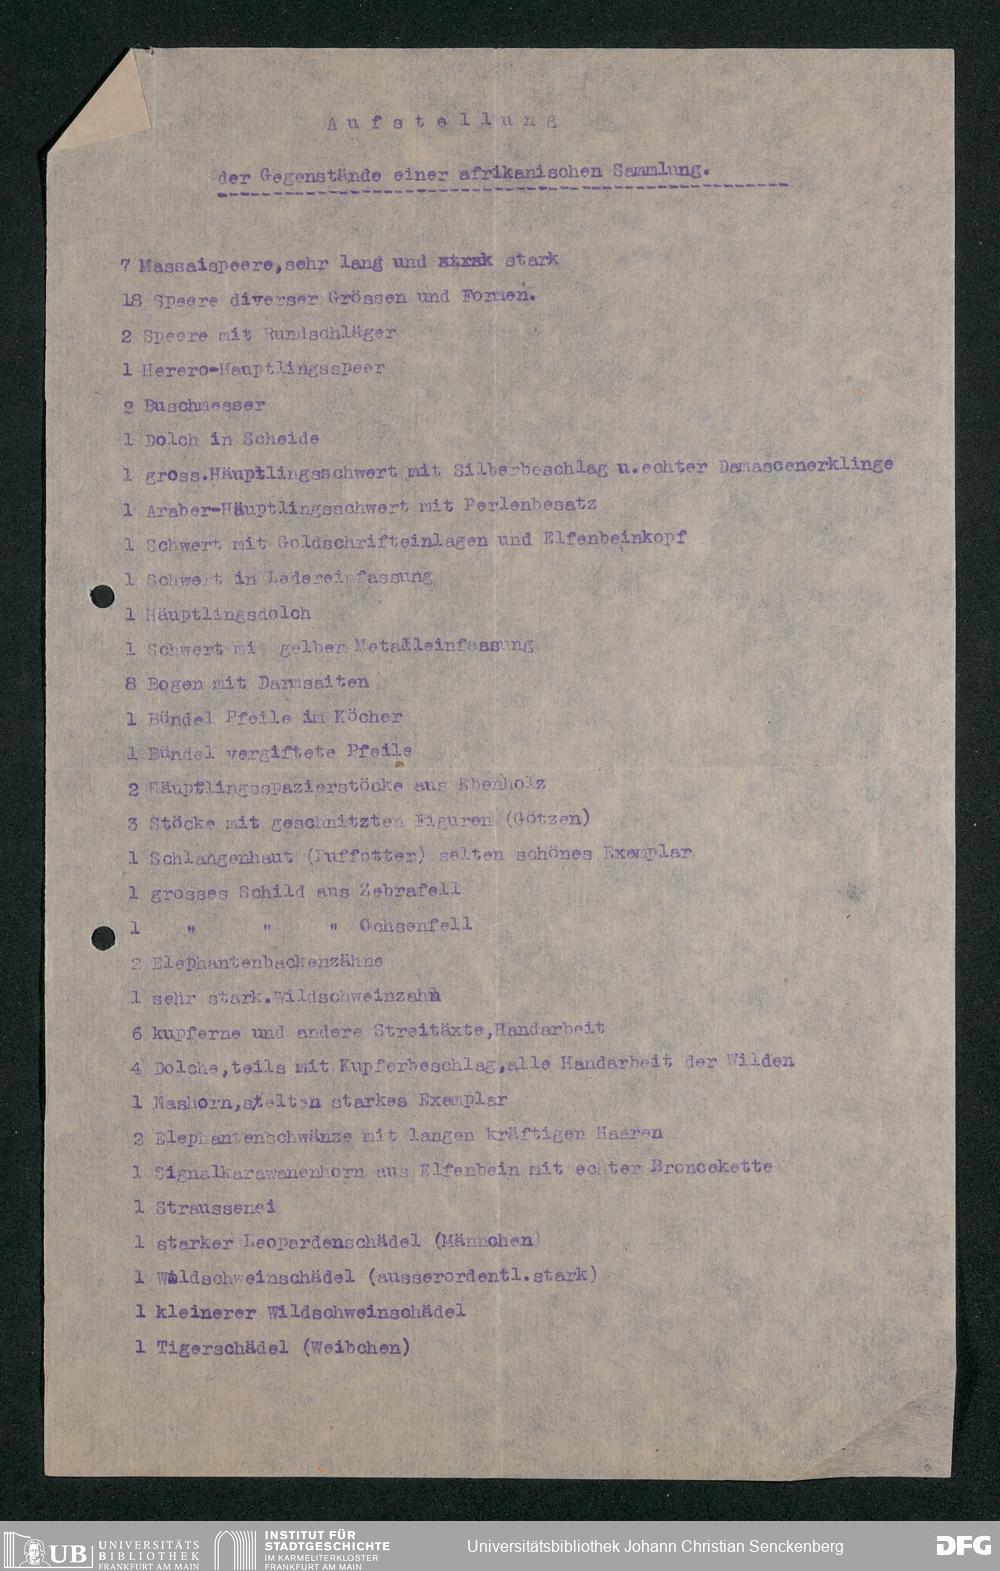 Aufstellung
der Gegenstände einer afrikanischen Sammlung.
7 Massaispeere,sehr lang und strak stark
18 Speere diverser Grössen und Formen.
2 Speere mit Rundschläger
1 Herero-Hauptlingsspeer
2 Buschmesser
1 Dolch in Scheide
1 gross.Häuptlingsschwert mit Silberbeschlag u.echter Damascenerklinge
1 Araber-Häuptlingsschwert mit Perlenbesatz
1 Schwert mit Goldschrifteinlagen und Elfenbeinkopf
1 Schwert in Ledereinfassung
1 Häuptlingsdolch
1 Schwert mit gelber Metalleinfassung
8 Bogen mit Darmsaiten
1 Bündel Pfeile im Köcher
1 Bündel vergiftete Pfeile
2 Häuptlingsspazierstöcke aus Ebenholz
3 Stöcke mit geschnitzten Figuren (Götzen)
1 Schlangenhaut (Puffotter) selten schönes Exemplar
1 grosses Schild aus Zebrafell
1 " " " Ochsenfell
2 Elephantenbackenzähne
1 sehr stark.Wildschweinzahn
6 kupferne und andere Streitäxte,Handarbeit
4 Dolche,teils mit Kupferbeschlag,alle Handarbeit der Wilden
1 Nashorn,selten starkes Exemplar
2 Elephantenschwänze mit langen kräftigen Haaren
1 Signalkarawanenhorn aus Elfenbein mit echter Broncekette
1 Straussenei
1 starker Leopardenschädel (Männchen)
1 Wildschweinschädel (ausserordentl.stark)
1 kleinerer Wildschweinschädel
1 Tigerschädel (Weibchen)
UB UNIVERSITÄTS
BIBLIOTHEK
FRANKFURT AM MAIN
INSTITUT FÜR
STADTGESCHICHTE
IM KARMELITERKLOSTER
FRANKFURT AM MAIN
Universitätsbibliothek Johann Christian Senckenberg
DFG